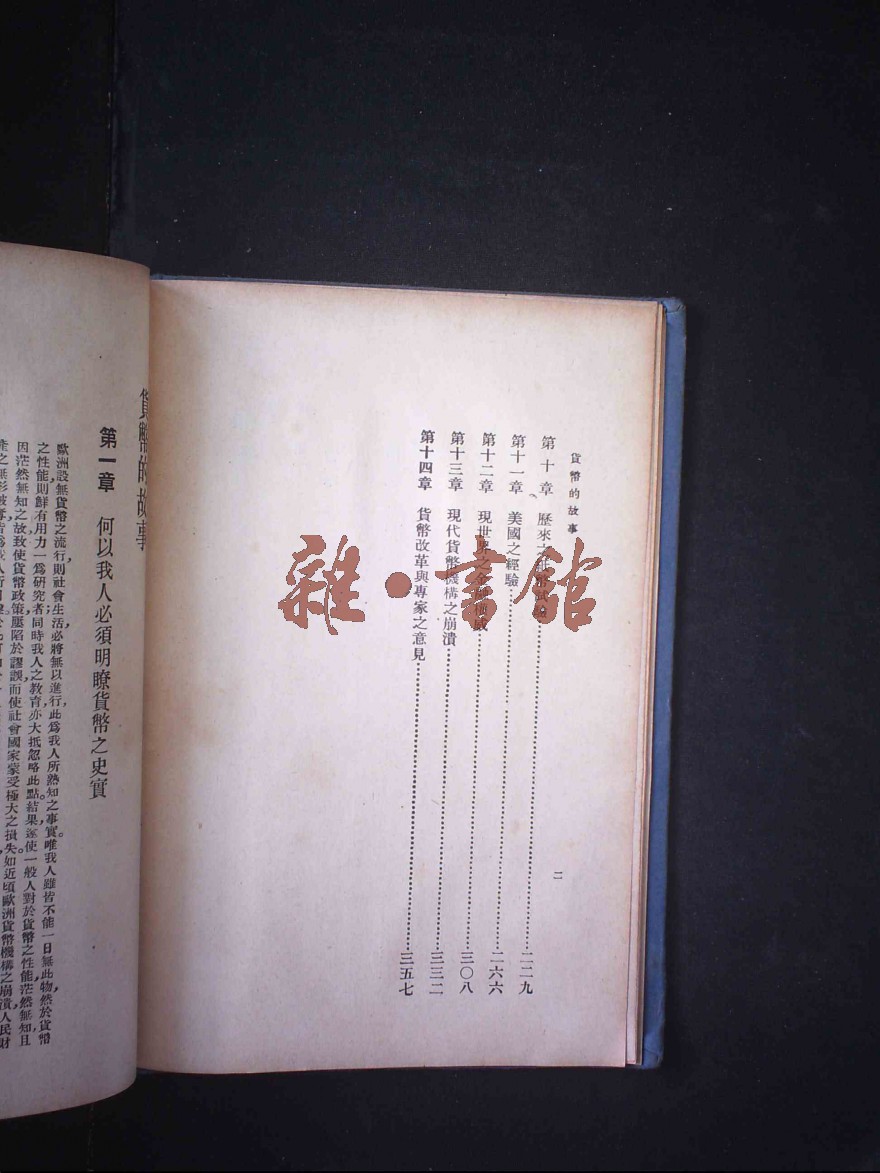 貨幣的故事
二
第十章 歷來之紙幣試驗……二二九
第十一章 美國之經驗……二六六
第十二章 現世界之金融權威……三〇八
第十三章 現代貨幣機構之崩潰……三三二
第十四章 貨幣改革與專家之意見……三五七
雜·書館
貨幣的故事
第一章 何以我人必須明瞭貨幣之史實
歐洲設無貨幣之流行,則社會生活必將無以進行;此爲我人所熟知之事實。唯我人雖皆不能一日無此物,然於貨幣
之性能,則鮮有用力一爲研究者;同時我人之教育,亦大抵忽略此點。結果遂使一般人對於貨幣之性能,茫然無知。且
因茫然無知之故,致使貨幣政策屢陷於謬誤,而使社會國家蒙受極大之損失。如近頃歐洲貨幣機構之崩潰,人民財
產之無形被奪,皆爲我人所